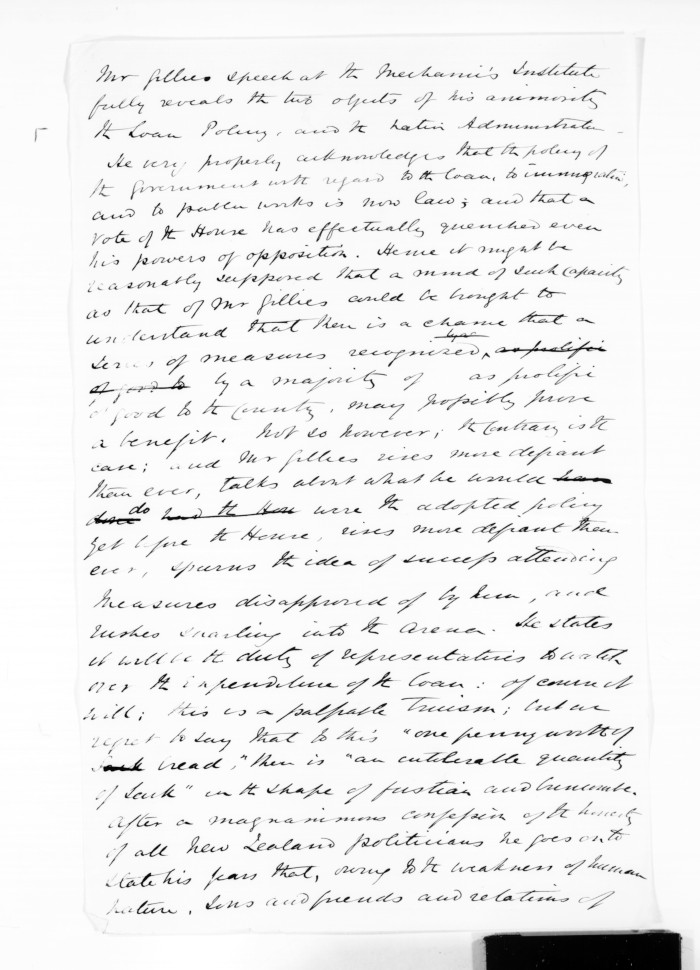 Mr Gillies speech at the Mechanic's Institute
fully reveals the two objects of his animosity
the Loan Policy, and the Native Administration
He very properly acknowledges that the policy of
the Government with regard to the loan, to immigration,
and to public works is now law; and that a
vote of the House has effectually quenched even
his powers of opposition. Hence it might be
reasonably supposed that a mind of such capacity
as that of Mr Gillies could be brought to
understand that there is a chance that a
series of measures recognized, as prolific
of good to by a majority of as prolific
of good to the Country, may possibly prove
a benefit. Not so however; the contrary is the
case; and Mr Gillies rises more defiant
than ever, talks about what he would have
done do had the House were the adopted policy
yet before the House, rises more defiant than
ever, spurns the idea of success attending
measures disapproved of by him, and
rushes snarling into the arena. He states
it will be the duty of representatives to watch
over the expenditure of the loan: of course it
will; this is a palpable truism; but we
regret to say that to this "one pennyworth of
Sack bread," there is "an intolerable quantity
of Sack" in the shape of fustian and buncombe.
After a magnanimous confession of the honesty
of all New Zealand politicians he goes on to
state his fears that, owing to the weakness of human
nature, sons and friends and relations of